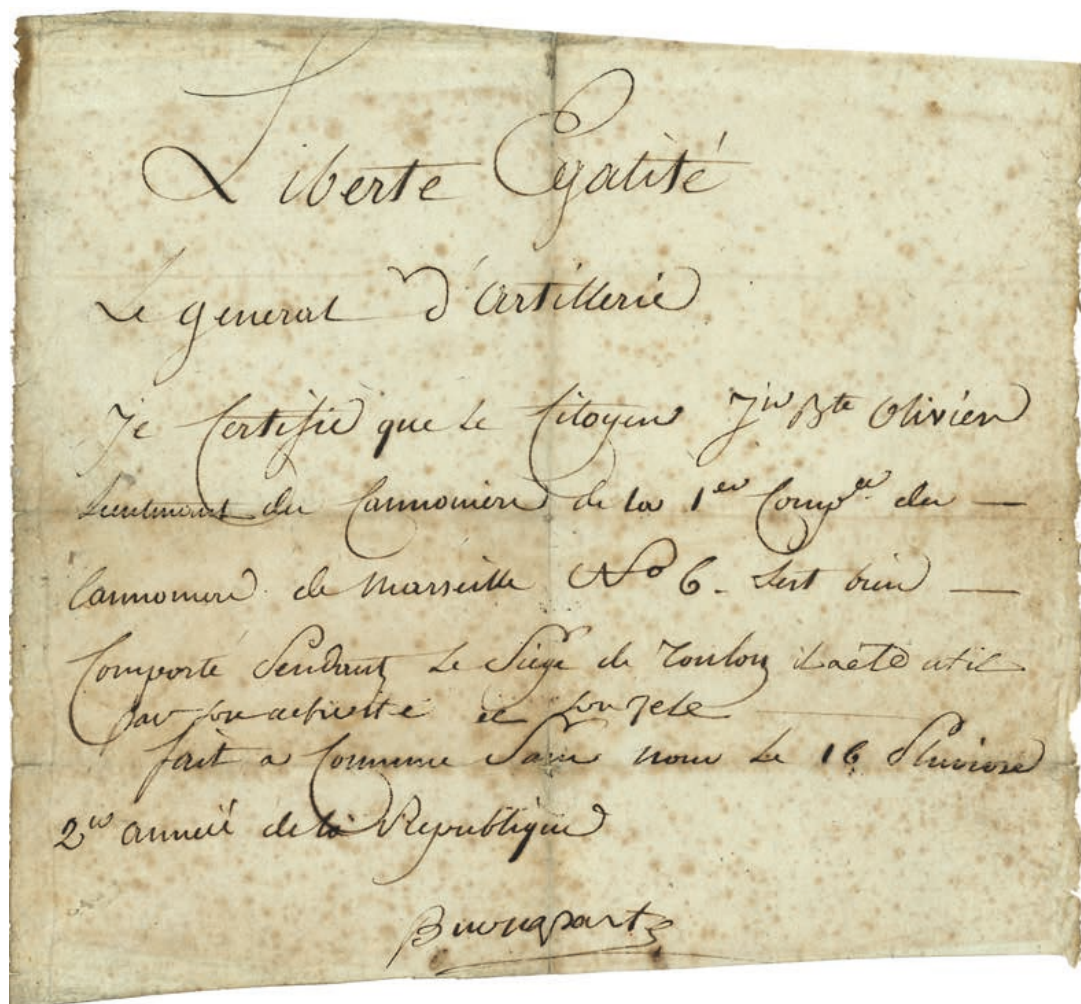 Liberte Egalité
Le general d'artillerie
Je Certifie que le Citoyen Jn Bte Olivier
Lieutenant des Cannoniere de la 1ere Compie des —
Cannoniere de Marseille No 6. sest bien —
Comporté Pendant Le Siege de Toulon il a été util
par son activitté et son zele —
fait a Commune Sans nom le 16 Pluviose
2e anneé de la Republique
Buonaparte